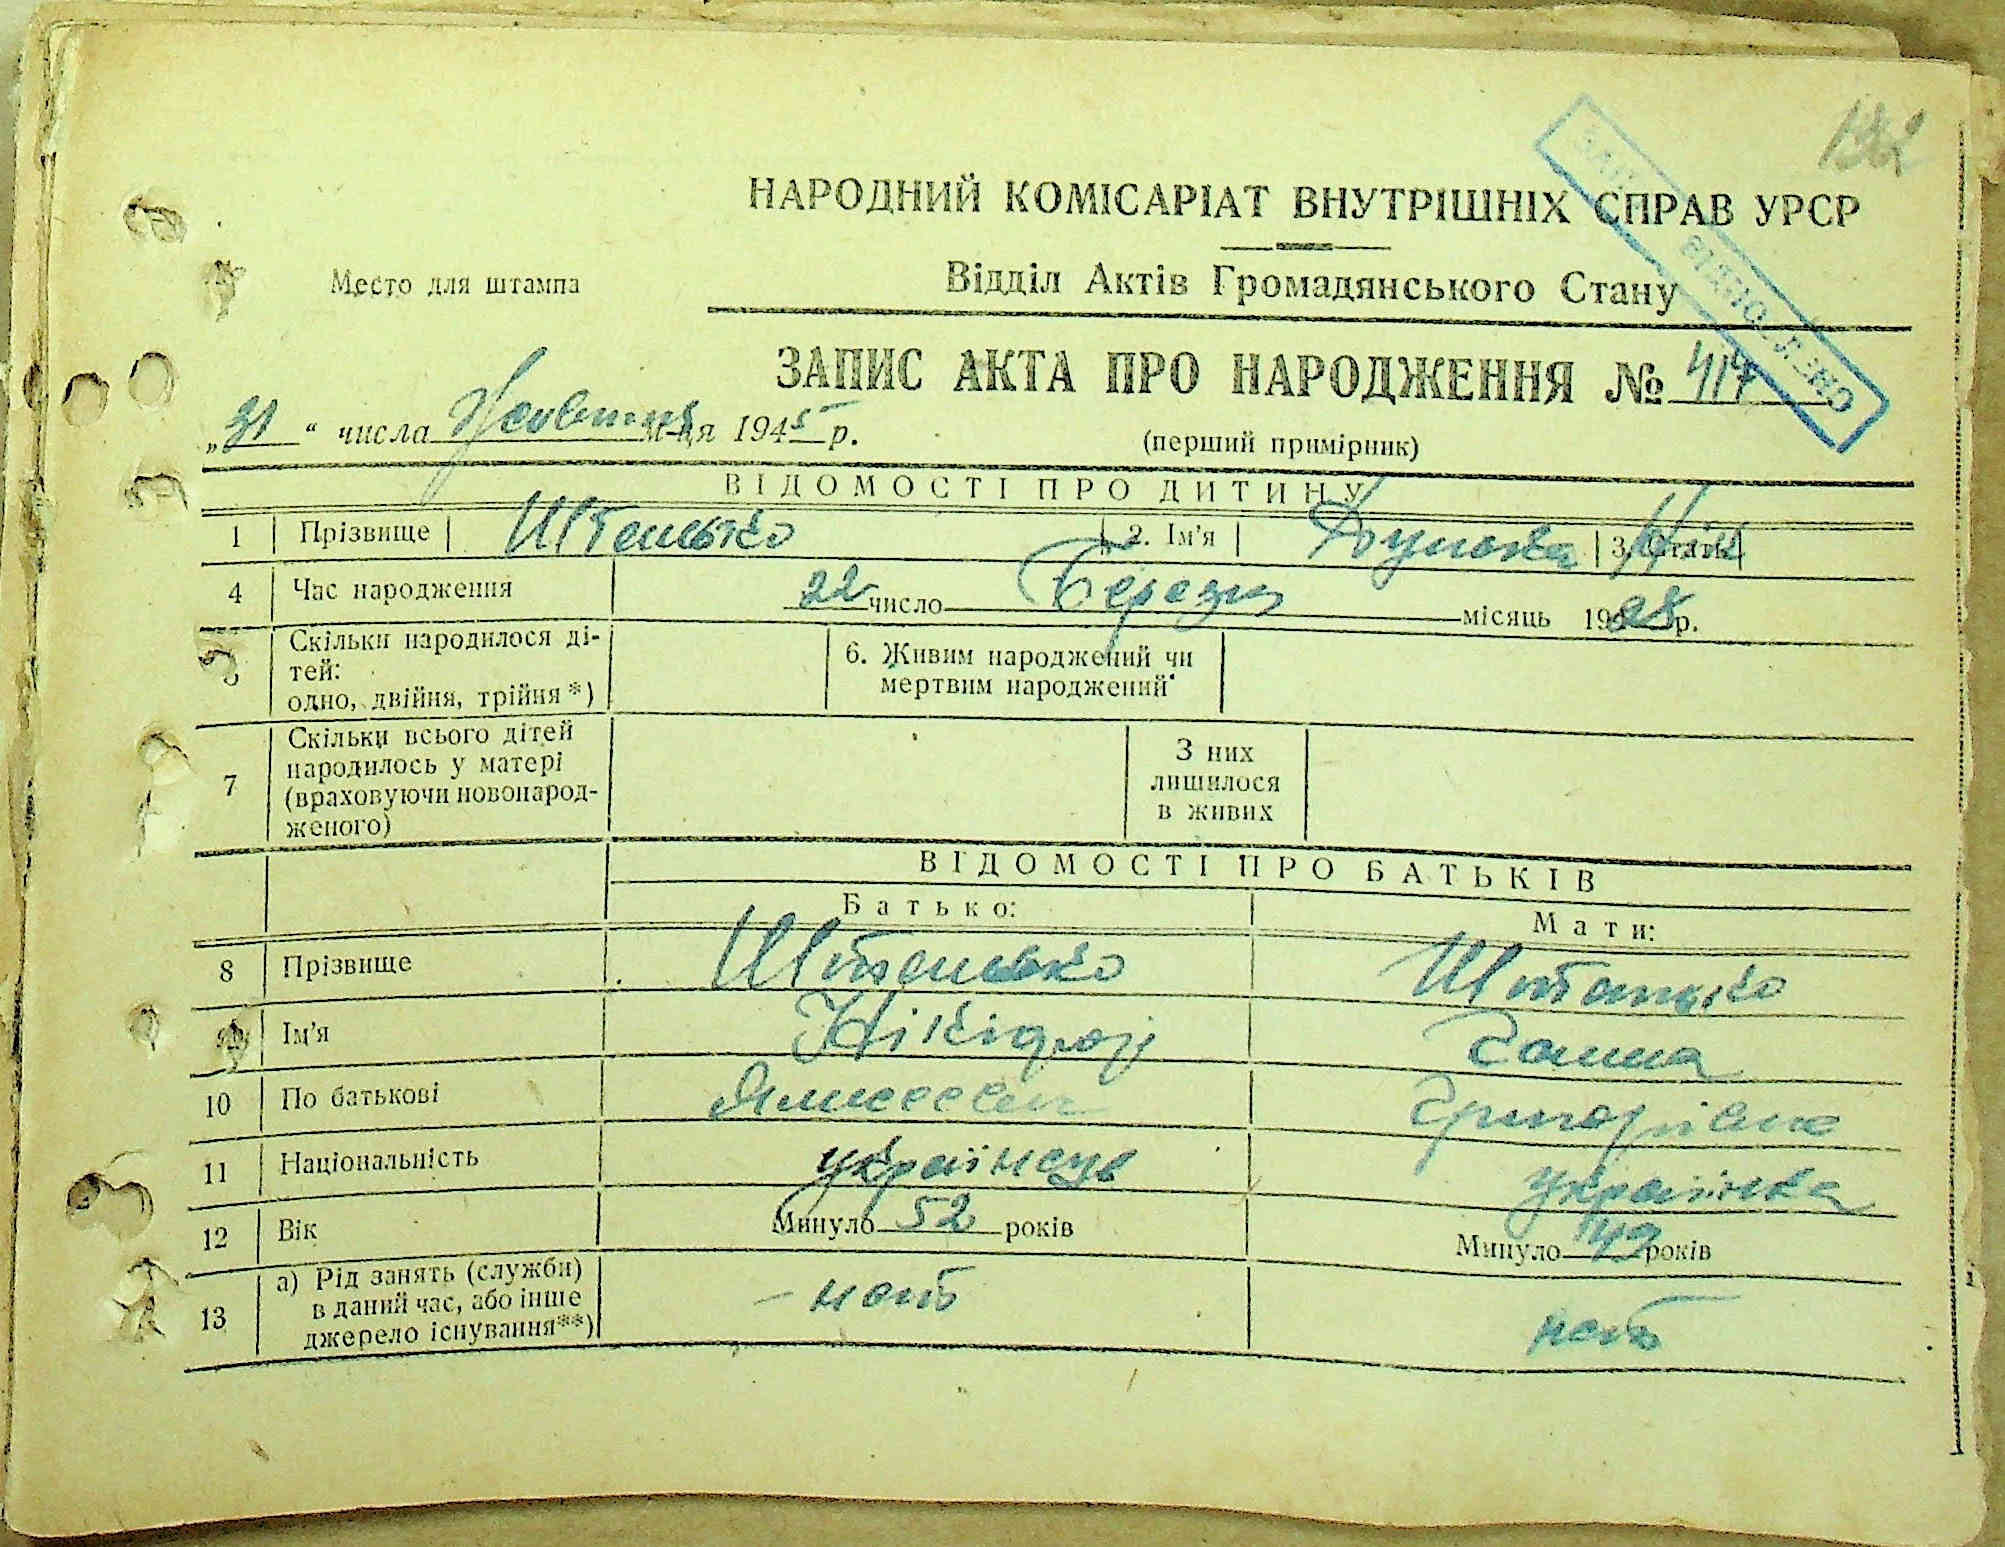 НАРОДНИЙ КОМІСАРІАТ ВНУТРІШНІХ СПРАВ УРСР
Место для штампа
Відділ Актів Громадянського Стану
ВІДНОВЛЕНО
ЗАПИС АКТА ПРО НАРОДЖЕННЯ № 414
„31“ числа Жовтня м-ця 1945 р.
(перший примірник)
ВІДОМОСТІ ПРО ДИТИНУ
1 Прізвище 2. Ім'я 3. Стать
4 Час народження 22 число Березня місяць 1928 р.
Скільки народилося ді-
тей:
одно, двійня, трійня *)
6. Живим народжений чи
мертвим народжений
7 Скільки всього дітей
народилось у матері
(враховуючи новонарод-
женого)
З них
лишилося
в живих
ВІДОМОСТІ ПРО БАТЬКІВ
Батько: Мати:
8 Прізвище
Ім'я Нікіфор Ганна
10 По батькові Григорівна
11 Національність українець українка
12 Вік Минуло 52 років Минуло 42 років
13 а) Рід занять (служби)
в даний час, або інше
джерело існування**)